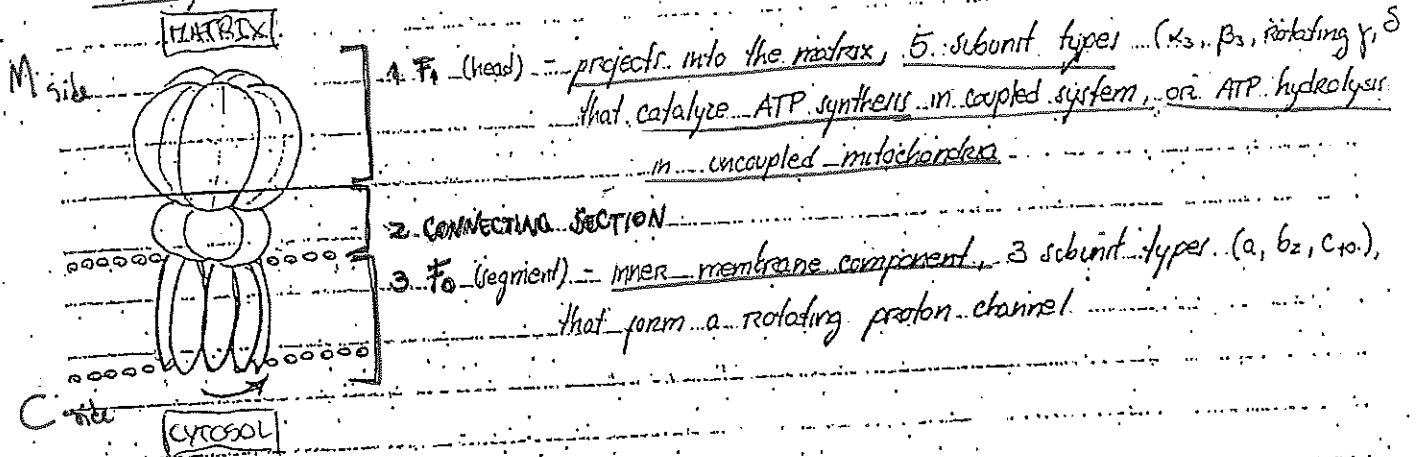 MATRIX
M side
1. F₁ (head) = projects into the matrix, 5 subunit types (α₃, β₃, rotating γ, δ
that catalyze ATP synthesis in coupled system, or ATP hydrolysis
in uncoupled mitochondria
2 CONNECTING SECTION
3 F₀ (segment) = inner membrane component, 3 subunit types (a, b₂, c₁₀),
that form a rotating proton channel
C side
CYTOSOL